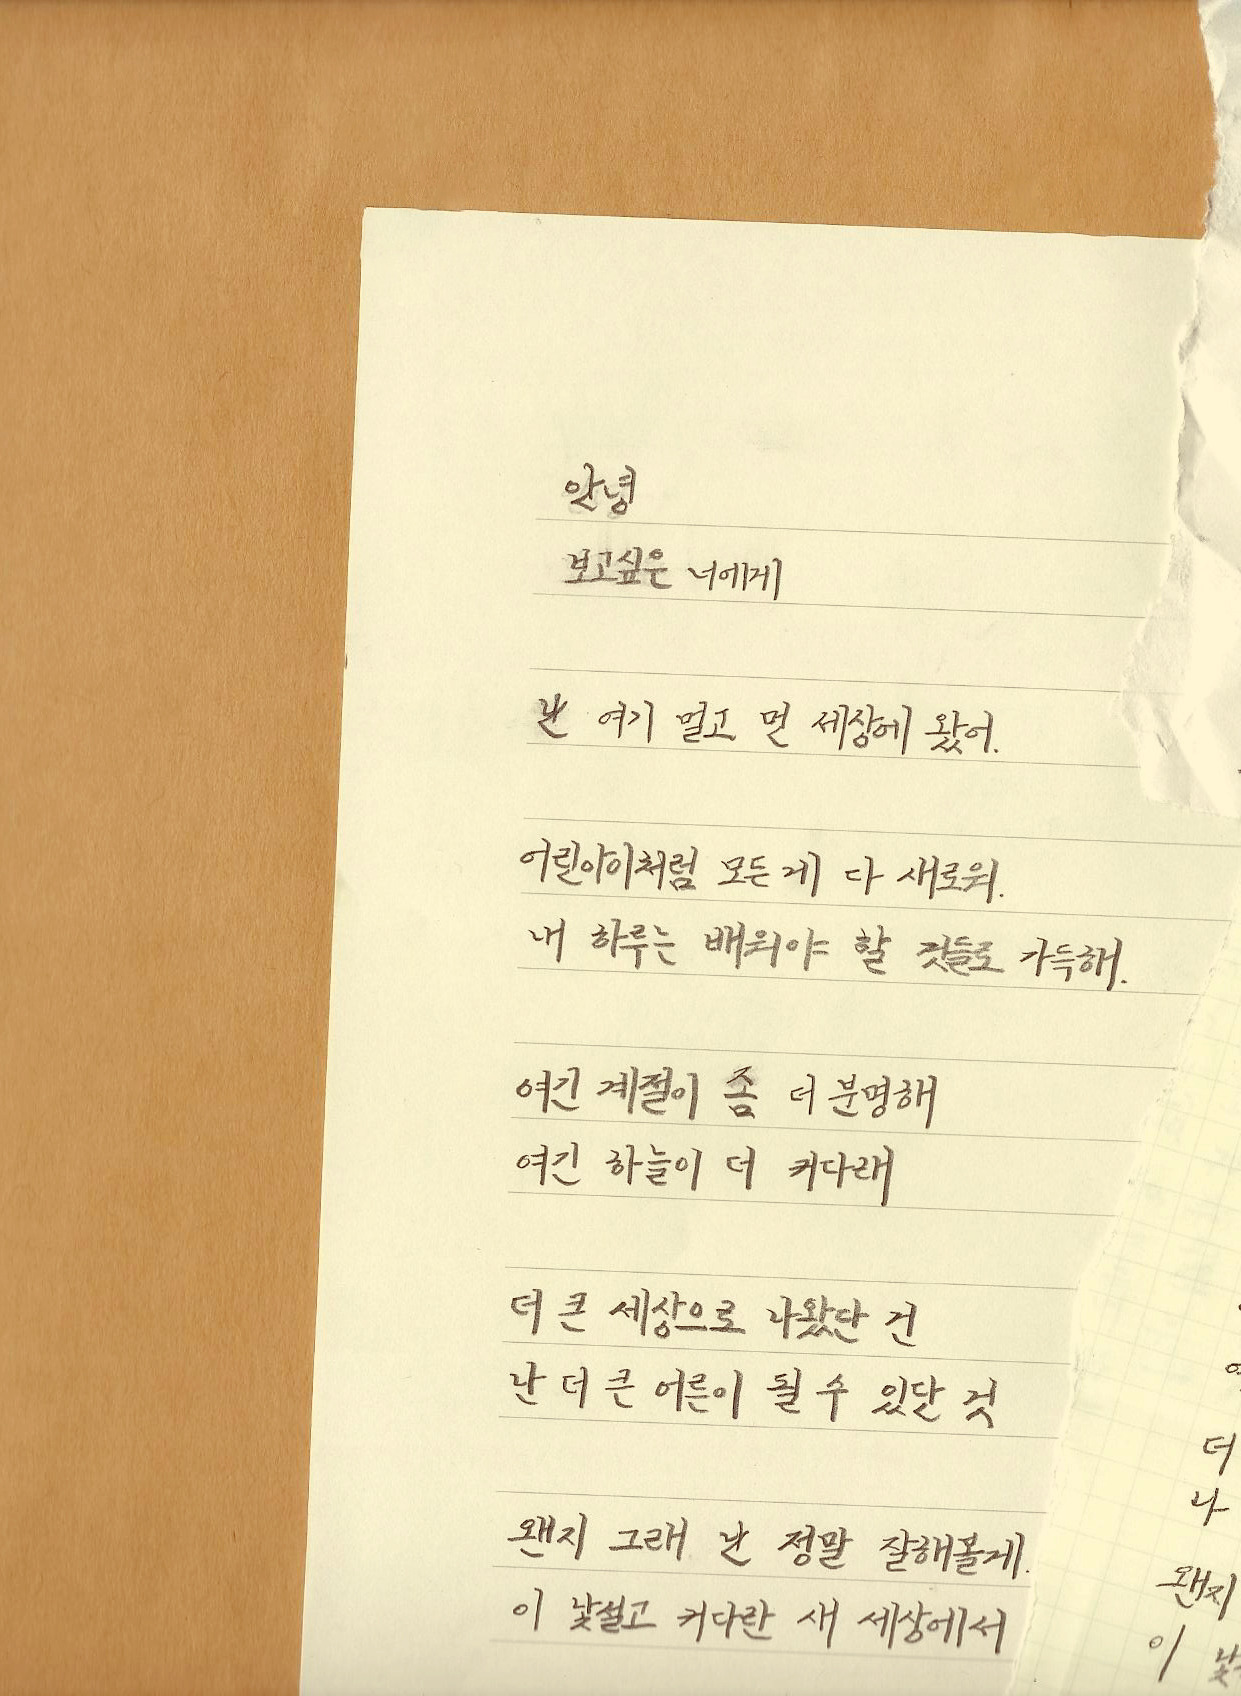 안녕
보고싶은 너에게
난 여기 멀고 먼 세상에 왔어.
어린아이처럼 모든 게 다 새로워.
내 하루는 배워야 할 것들로 가득해.
여긴 계절이 좀 더 분명해
여긴 하늘이 더 커다래
더 큰 세상으로 나왔단 건
난 더 큰 어른이 될 수 있단 것
왠지 그래 난 정말 잘해볼게.
이 낯설고 커다란 새 세상에서
더
나
왠지
이